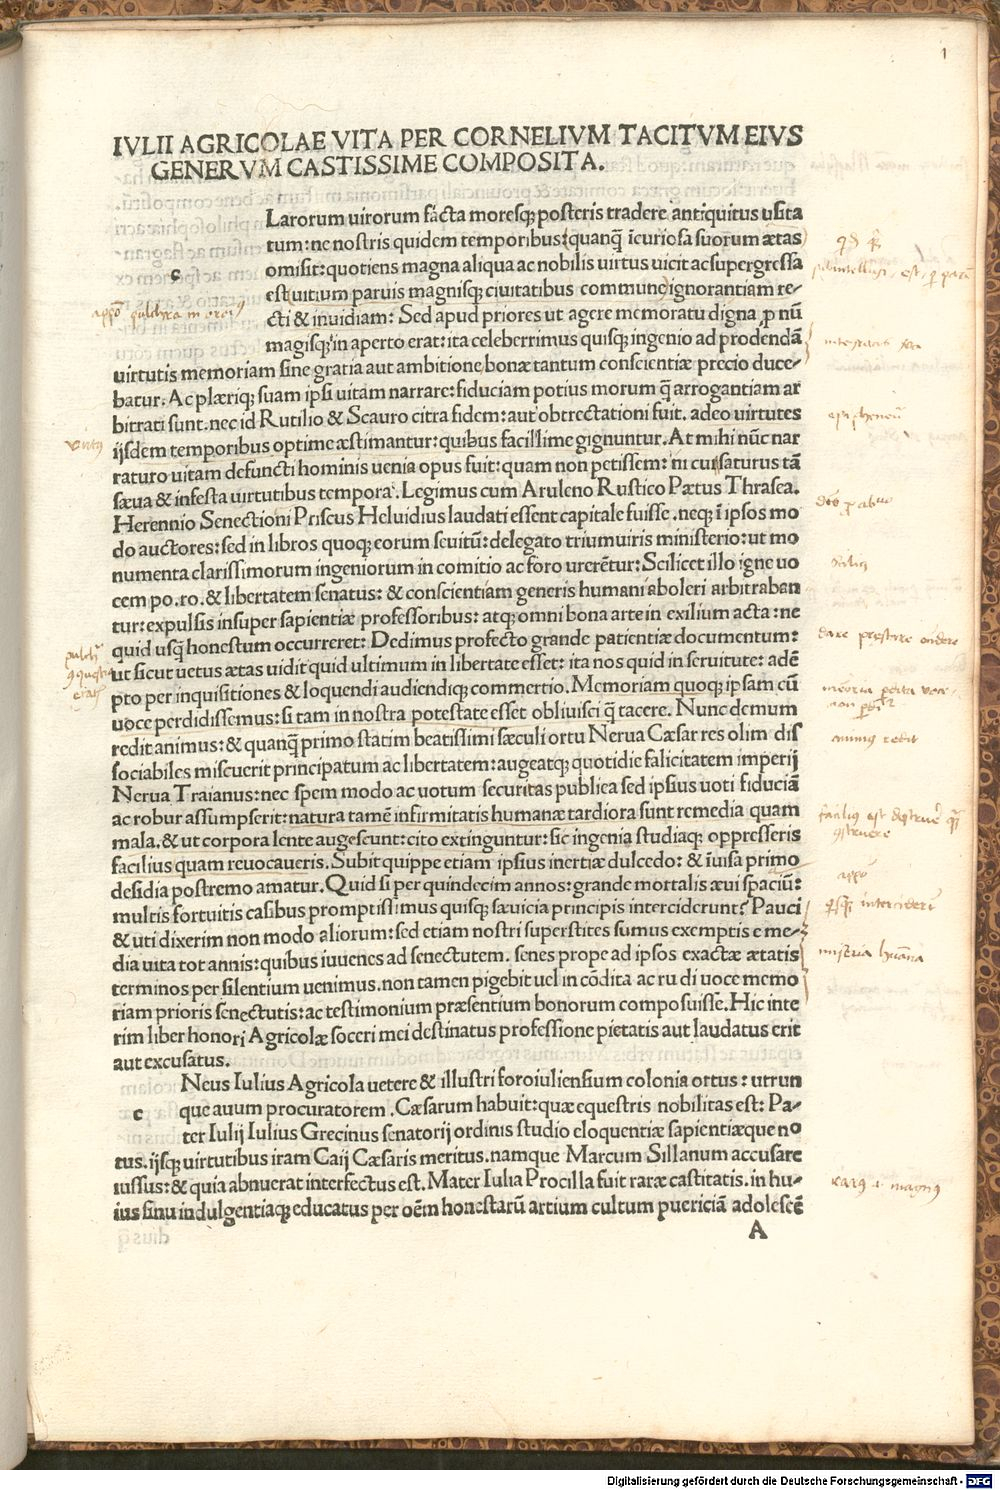 1
IVLII AGRICOLAE VITA PER CORNELIVM TACITVM EIVS
GENERVM CASTISSIME COMPOSITA.
c
Larorum uirorum facta moresq; posteris tradere antiquitus usita
tum: ne nostris quidem temporibus: quanq̃ ĩcuriosa suorum ætas
omisit: quotiens magna aliqua ac nobilis virtus uicit ac supergressa
est uitium paruis magnisq; ciuitatibus commune ignorantiam re-
cti & inuidiam: Sed apud priores ut agere memoratu digna ꝓ nũ
magisq; in aperto erat: ita celeberrimus quisq; ingenio ad prodendã
uirtutis memoriam sine gratia aut ambitione bonæ tantum conscientiæ precio duce-
batur. Ac plæriq; suam ipsi uitam narrare: fiduciam potius morum q̃ arrogantiam ar
bitrati sunt. nec id Rutilio & Scauro citra fidem: aut obtrectationi fuit. adeo uirtutes
ijsdem temporibus optime æstimantur: quibus facillime gignuntur. At mihi nũc nar
raturo uitam defuncti hominis uenia opus fuit: quam non petissem: ni cursaturus tã
sæua & infesta uirtutibus tempora. Legimus cum Aruleno Rustico Pætus Thrasea.
Herennio Senectioni Priscus Heluidius laudati essent capitale fuisse. neq; ĩ ipsos mo
do auctores: sed in libros quoq; eorum seuitũ: delegato triumuiris ministerio: ut mo
numenta clarissimorum ingeniorum in comitio ac foro urerẽtur: Scilicet illo igne uo
cem po. ro. & libertatem senatus: & conscientiam generis humani aboleri arbitraban
tur: expulsis insuper sapientiæ professoribus: atq; omni bona arte in exilium acta: ne
quid usq̃ honestum occurreret: Dedimus profecto grande patientiæ documentum:
ut sicut uetus ætas uidit quid ultimum in libertate esset: ita nos quid in seruitute: adẽ
pto per inquisitiones & loquendi audiendiq; commertio. Memoriam quoq; ipsam cũ
uoce perdidissemus: si tam in nostra potestate esset obliuisci q̃ tacere. Nunc demum
redit animus: & quanq̃ primo statim beatissimi sæculi ortu Nerua Cæsar res olim dis
sociabiles miscuerit principatum ac libertatem: augeatq; quotidie falicitatem imperij
Nerua Traianus: nec spem modo ac uotum securitas publica sed ipsius uoti fiduciã
ac robur assumpserit: natura tamẽ infirmitatis humanæ tardiora sunt remedia quam
mala. & ut corpora lente augescunt: cito extinguntur: sic ingenia studiaq; oppresseris
facilius quam reuocaueris. Subit quippe etiam ipsius inertiæ dulcedo: & ĩuisa primo
desidia postremo amatur. Quid si per quindecim annos: grande mortalis æui spaciũ:
multis fortuitis casibus promptissimus quisq; sæuicia principis interciderunt? Pauci
& uti dixerim non modo aliorum: sed etiam nostri superstites sumus exemptis e me-
dia uita tot annis: quibus iuuenes ad senectutem. senes prope ad ipsos exactæ ætatis
terminos per silentium uenimus. non tamen pigebit uel in cõdita ac ru di uoce memo
riam prioris senectutis: ac testimonium præsentium bonorum composuisse. Hic inte
rim liber honori Agricolæ soceri mei destinatus professione pietatis aut laudatus erit
aut excusatus.
c
Neus Iulius Agricola uetere & illustri foroiuliensium colonia ortus: utrun
que auum procuratorem. Cæsarum habuit: quæ equestris nobilitas est: Pa-
ter Iulij Iulius Grecinus senatorij ordinis studio eloquentiæ sapientiæque no
tus. ijsq; uirtutibus iram Caij Cæsaris meritus. namque Marcum Sillanum accusare
iussus: & quia abnuerat interfectus est. Mater Iulia Procilla fuit raræ castitatis. in hu-
ius sinu indulgentiaq; educatus per oẽm honestarũ artium cultum puericiã adolescẽ
A
animus redit
miseria huãna
Digitalisierung gefördert durch die Deutsche Forschungsgemeinschaft - DFG